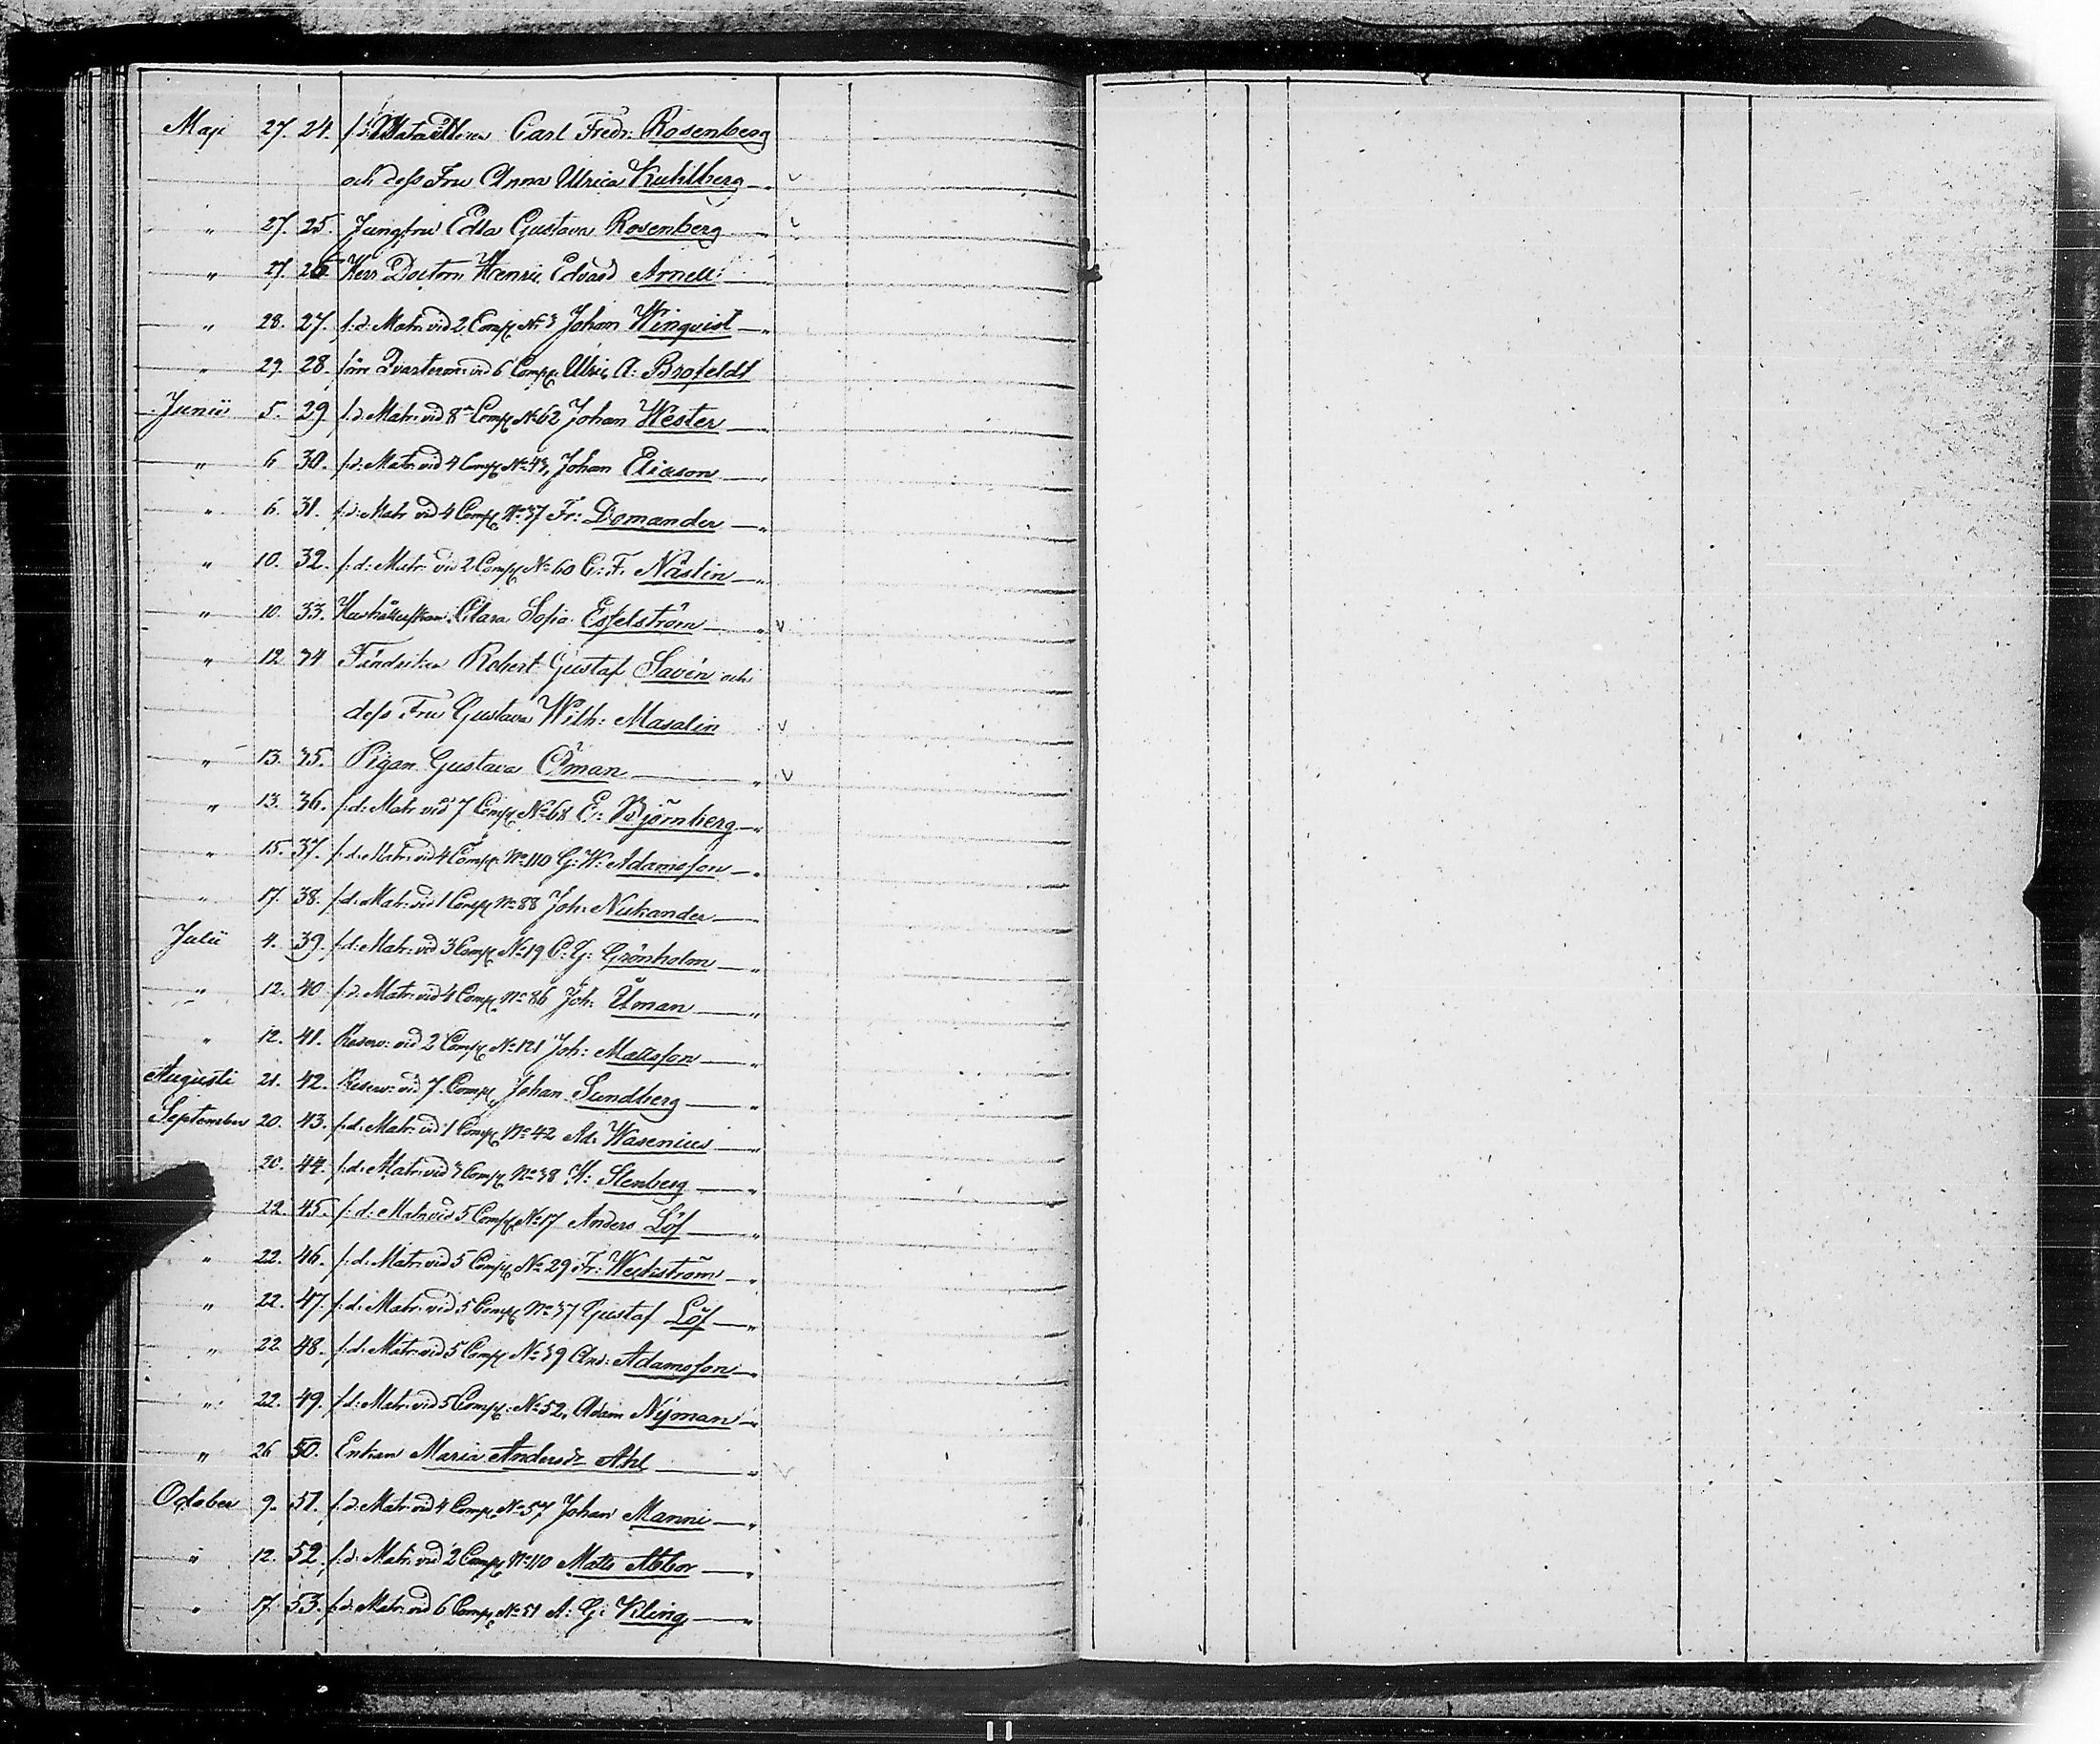 Maji 27. 24. f:d: Carl Fredr: Rosenberg
och dess Fru Anna Ulrica Kuhlberg — " v
" 27. 25. Jungfru Edla Gustava Rosenberg — " v
" 27. 26 Herr Doctorn Henric Edvard Arnell: —
" 28. 27. f:d: Matr: vid 2 Comp: No 3 Johan Winquist — "
" 29. 28. förre Qvarterm: vid 6 Comp: Ulric A: Brofeldt
Junii 5. 29. f:d: Matr: vid 8de Comp: No 62 Johan Wester — "
" 6 30. f:d: Matr: vid 4 Comp: No 43, Johan Eliason — "
" 6. 31. f:d: Matr: vid 4 Comp: No 37 Fr: Domander — "
" 10. 32. f:d: Matr: vid 2 Comp: No 60 C: F. Näslin — "
" 10. 33. Clara Sofia Esselström — " v
" 12 34 Fändriken Robert Gustaf Savén och
dess Fru Gustava Wilh: Masalin v
" 13. 35. Pigan Gustava Öman — " v
" 13. 36. f:d: Matr: vid 7 Comp: No 68 E: Björnberg — "
" 15. 37. f:d: Matr: vid 4 Comp: No 110 G: W: Adamsson — "
" 17. 38. f:d: Matr: vid 1 Comp: No 88 Joh: Nukander —
Julii 4. 39. f:d: Matr: vid 3 Comp: No 19 C: G: Grönholm — "
" 12. 40 f:d: Matr: vid 4 Comp: No 86 Joh: Uman — "
" 12. 41. Reserv: vid 2 Comp: No 121 Joh: Mattsson — "
Augusti 21. 42. Reserv: vid 7 Comp: Johan Sundberg — "
September 20. 43. f:d: Matr: vid 1 Comp: No 42 Ad: Wasenius — "
20. 44. f:d: Matr: vid 3 Comp: No 38 Stenberg — "
22. 45. f:d: Matr: vid 5 Comp: No 17 Anders Löf — "
" 22. 46. f:d: Matr: vid 5 Comp: No 29 Fr: Weckström — "
" 22. 47. f:d: Matr: vid 5 Comp: No 37 Gustaf Löf — "
" 22 48. f:d: Matr: vid 5 Comp: No 39 And: Adamsson — "
" 22. 49. f:d: Matr: vid 5 Comp: No 52, Adam Nyman — "
" 26 50. Enkan Maria Andersdr Ahl — " v
October 9. 51. f:d: Matr: vid 4 Comp: No 57 Johan Manni — "
" 12. 52. f:d: Matr: vid 2 Comp: No 110 Matts Abbor — "
" 17. 53. f:d: Matr: vid 6 Comp: No 51 A: G: Kling — "